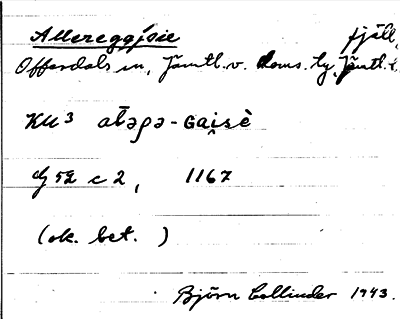 fjäll,
Offerdals sn, Jämtl. v. doms. tg, Jämtl. l.
KU3 atəpə-Gaisè
G 52 c 2, 1167
(ok. bet. )
Björn Collinder 1943.